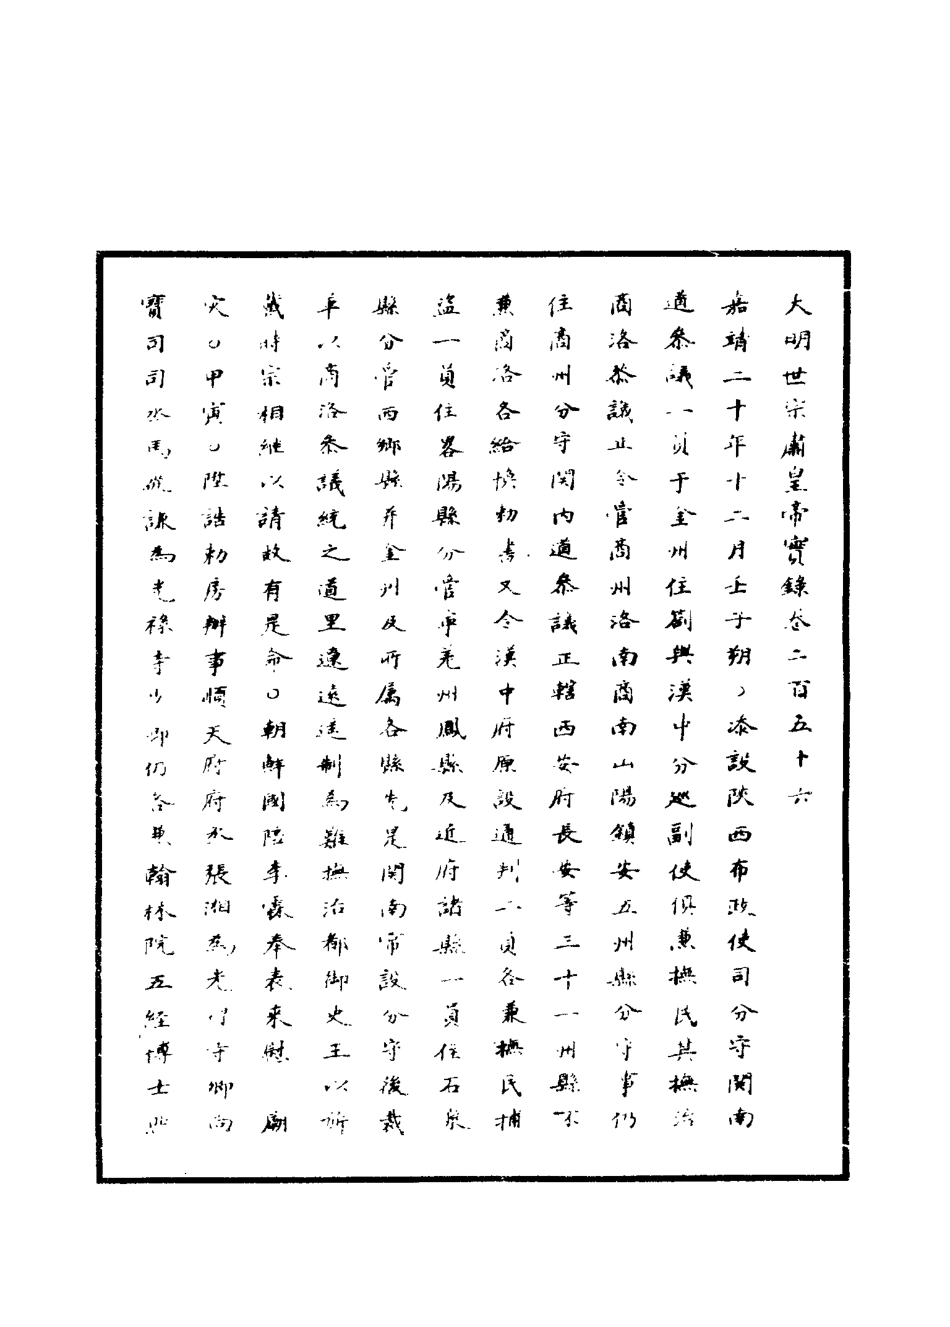 大明世宗肅皇帝實錄卷二百五十六
嘉靖二十年十二月壬子朔○添設陝西布政使司分守関南
道叅議一員于金州住劄與漢中分廵副使俱兼撫民其撫治
商洛叅議止令管商州洛南商南山陽鎮安五州縣分守事仍
住商州分守関内道叅議正轄西安府長安等三十一州縣不
兼商洛各給換勑書又令漢中府原設通判二員各兼撫民捕
盜一員住畧陽縣分管寧羌州鳳縣及近府諸縣一員住石泉
縣分管西鄉縣并金州及所属各縣先是関南常設分守後裁
革以商洛叅議統之道里遼遠遥制為難撫治都御史王以旂
戴時宗相継以請故有是命○朝鮮國陪李 奉表來慰 廟
灾○甲寅○陞誥勑房辦事順天府府丞張湘為光祿寺卿尚
寶司司丞馬 謙為光祿寺少卿仍各兼翰林院五經博士